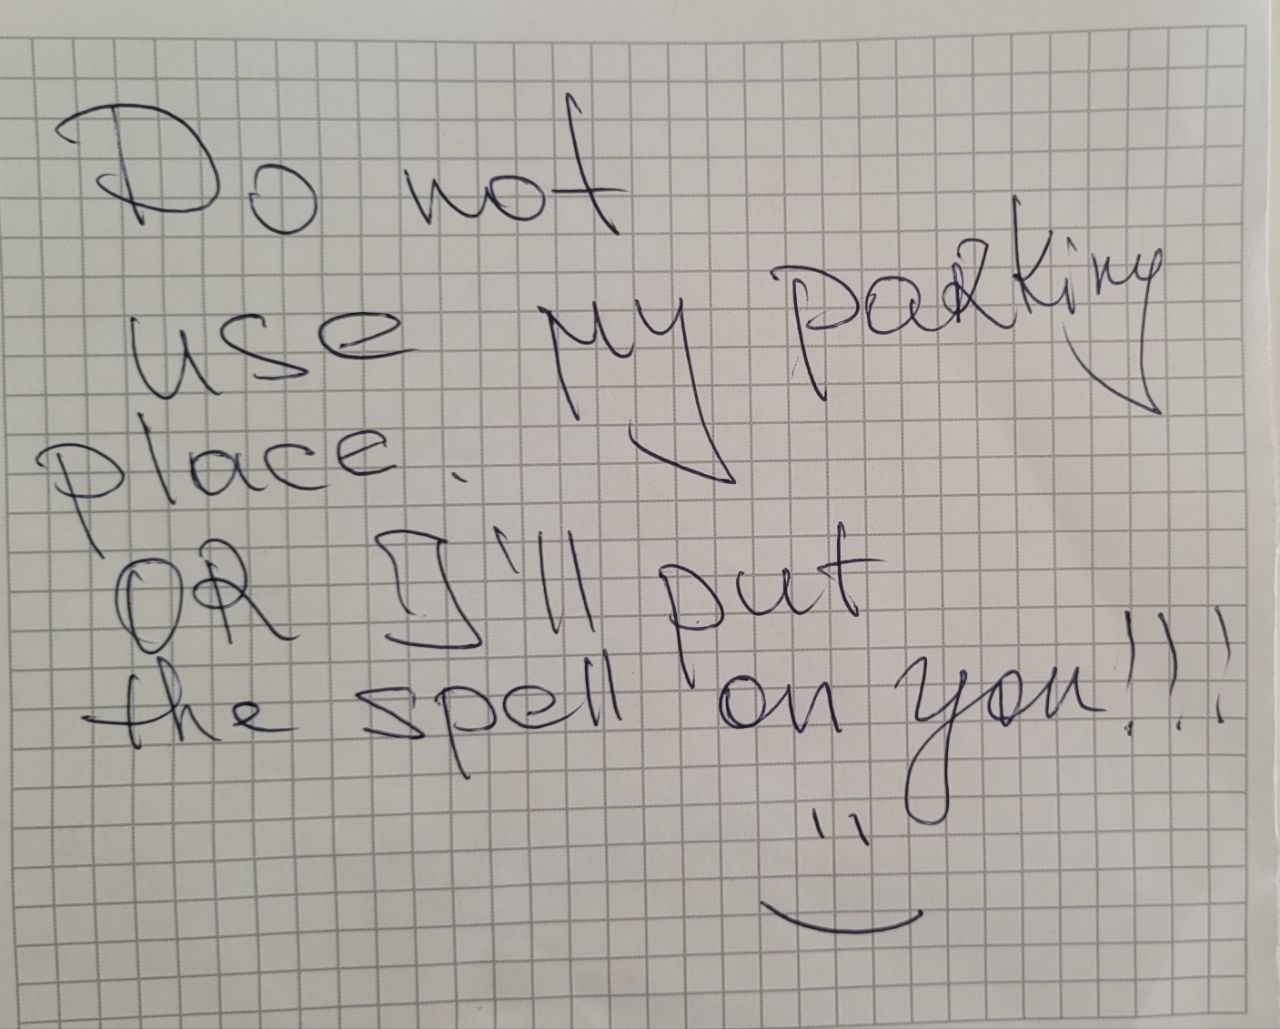 Do not
use My parking
place.
OR I'll put
the spell on you!!!